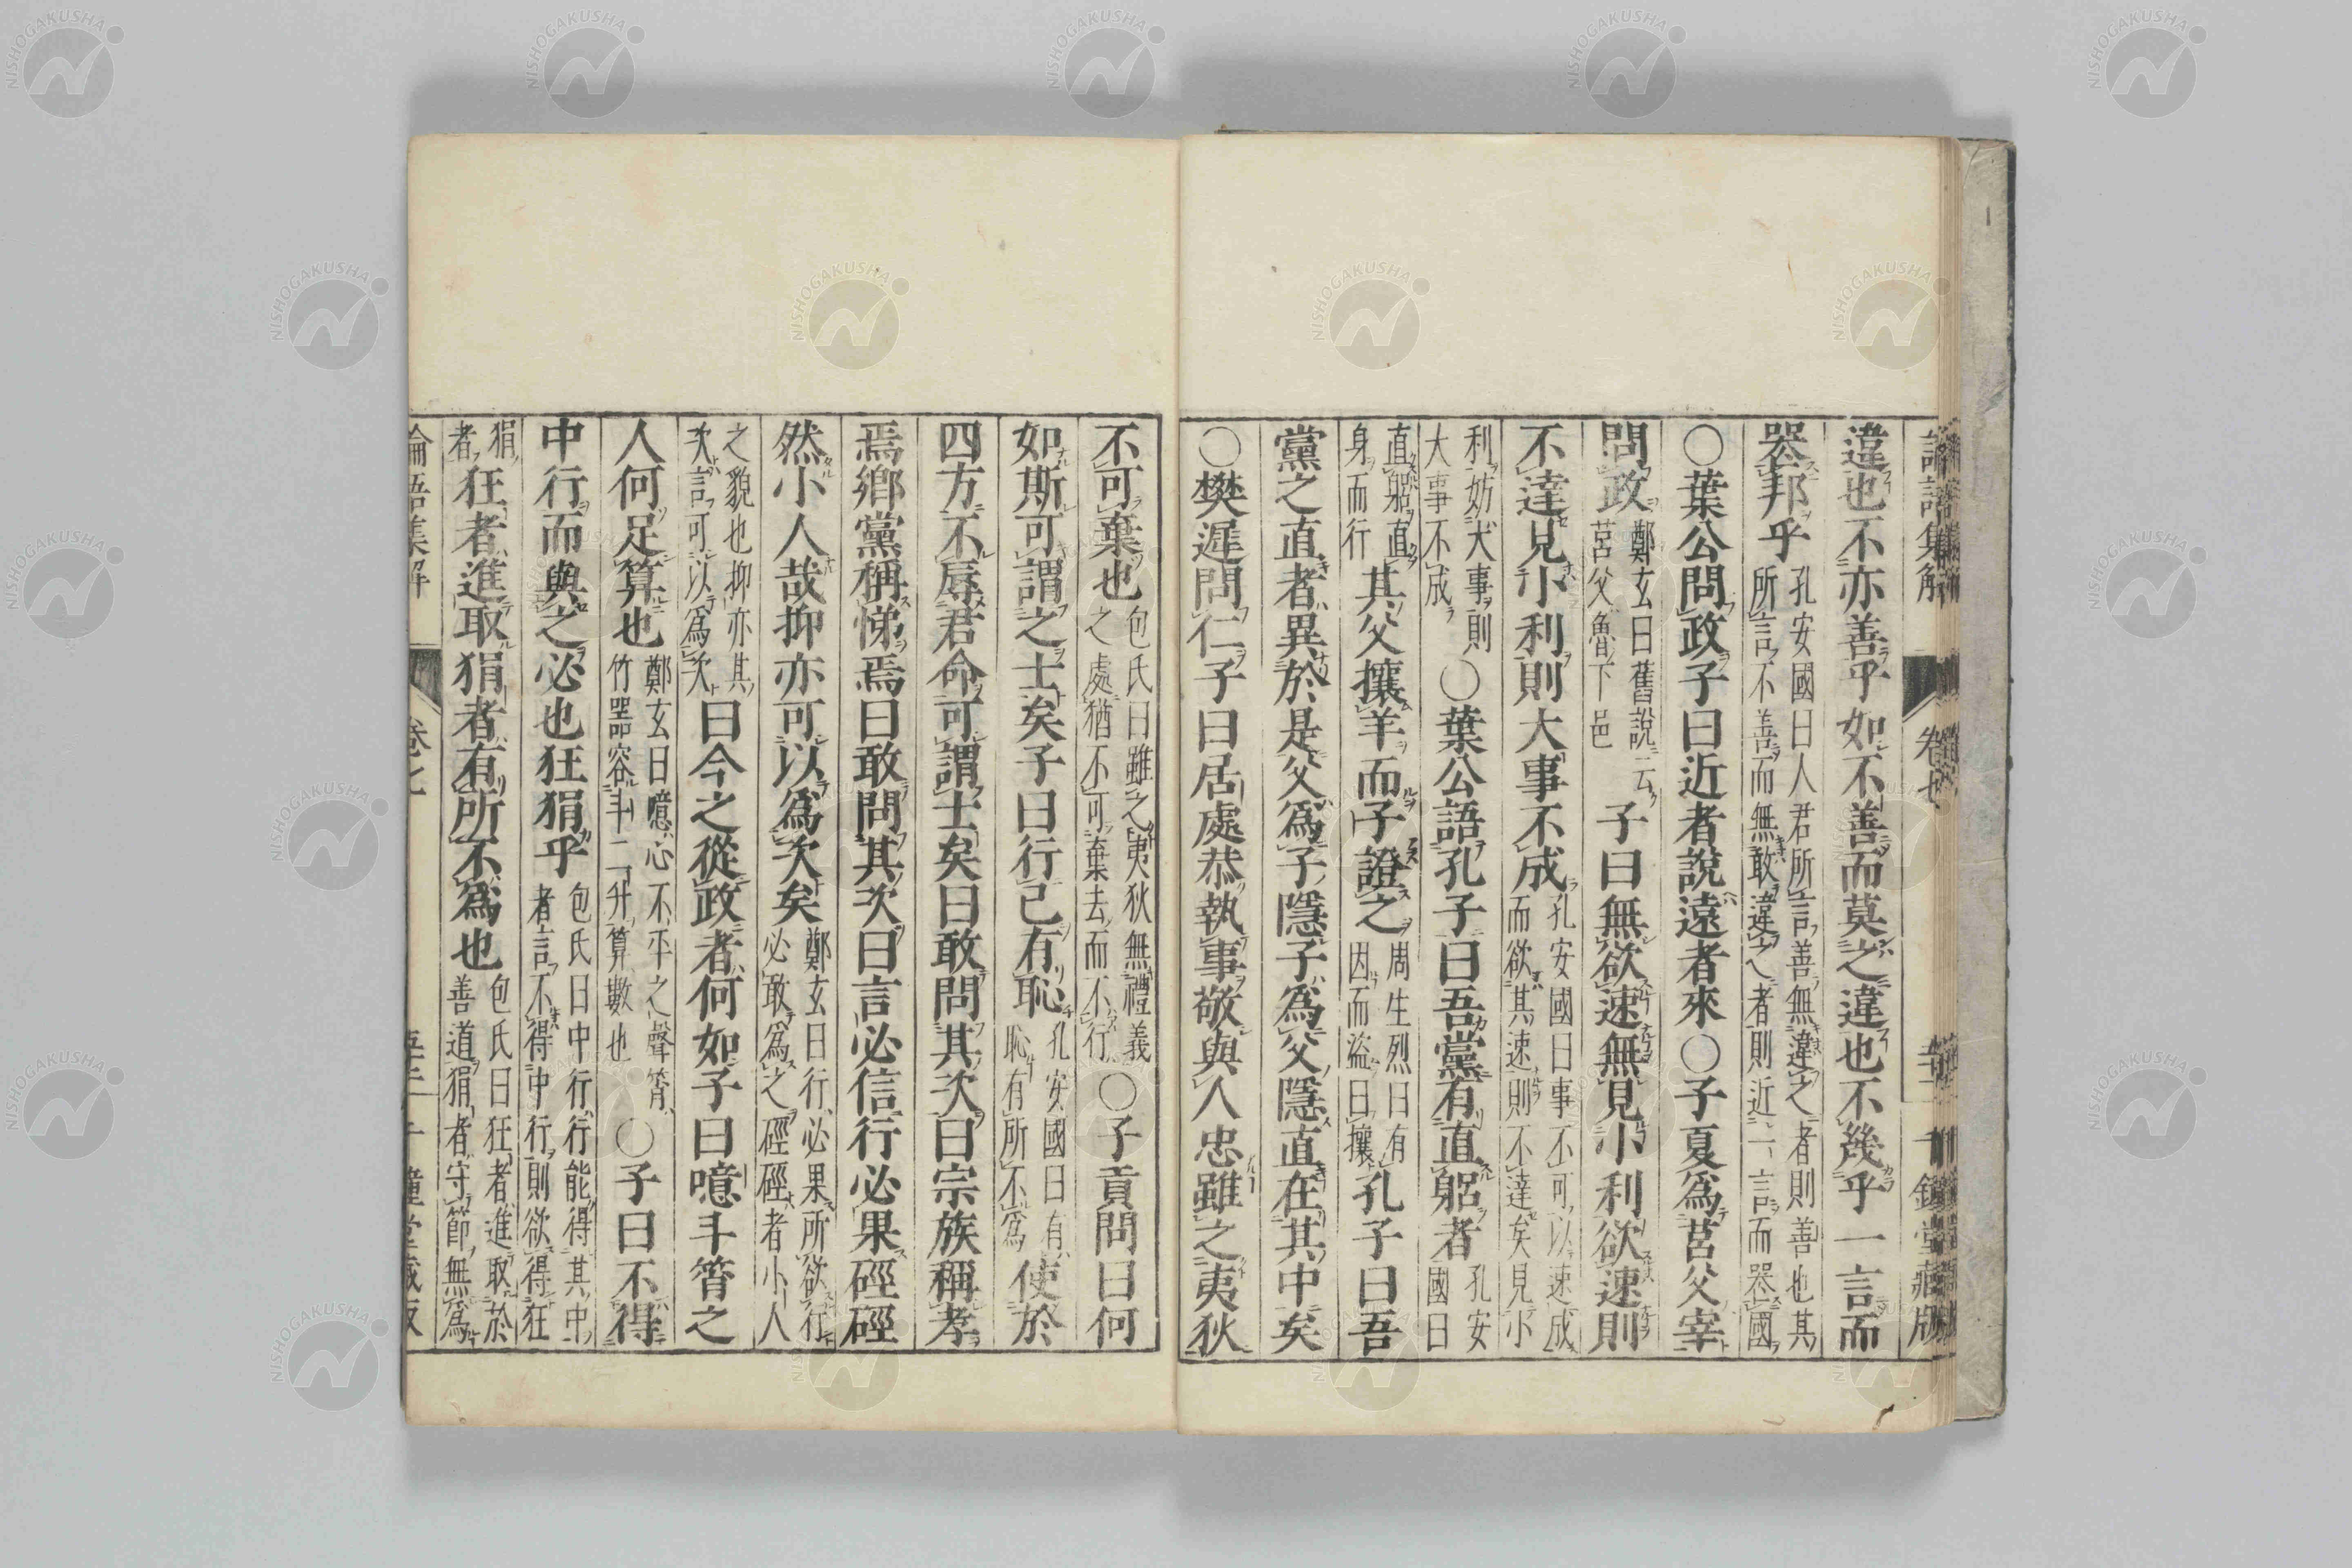 論語集解 卷七
違也不亦善乎如不善而莫之違也不幾乎一言而
喪邦乎孔安國曰人君所言善無違之者則善也其所言不善而無敢違之者則近一言而喪國
○葉公問政子曰近者說遠者來○子夏爲莒父宰
問政鄭玄曰舊說云莒父魯下邑子曰無欲速無見小利欲速則
不達見小利則大事不成孔安國曰事不可以速成而欲其速則不達矣見小
利妨大事則大事不成○葉公語孔子曰吾黨有直躬者孔安國曰
直躬直身而行其父攘羊而子證之周生烈曰有因而盜曰攘孔子曰吾
黨之直者異於是父爲子隱子爲父隱直在其中矣
○樊遲問仁子曰居處恭執事敬與人忠雖之夷狄
不可棄也包氏曰雖之夷狄無禮義之處猶不可棄去而不行○子貢問曰何
如斯可謂之士矣子曰行己有恥孔安國曰有恥有所不爲使於
四方不辱君命可謂士矣曰敢問其次曰宗族稱孝
焉鄉黨稱悌焉曰敢問其次曰言必信行必果硜硜
然小人哉抑亦可以爲次矣鄭玄曰行必果所欲行必敢爲之硜硜者小人
之貌也抑亦其次言可以爲次曰今之從政者何如子曰噫斗筲之
人何足算也鄭玄曰噫心不平之聲筲竹器容斗二升算數也○子曰不得
中行而與之必也狂狷乎包氏曰中行行能得其中者言不得中行則欲得狂
狷者狂者進取狷者有所不爲也包氏曰狂者進取於善道狷者守節無爲
論語集解 卷七
NISHOGAKUSHA